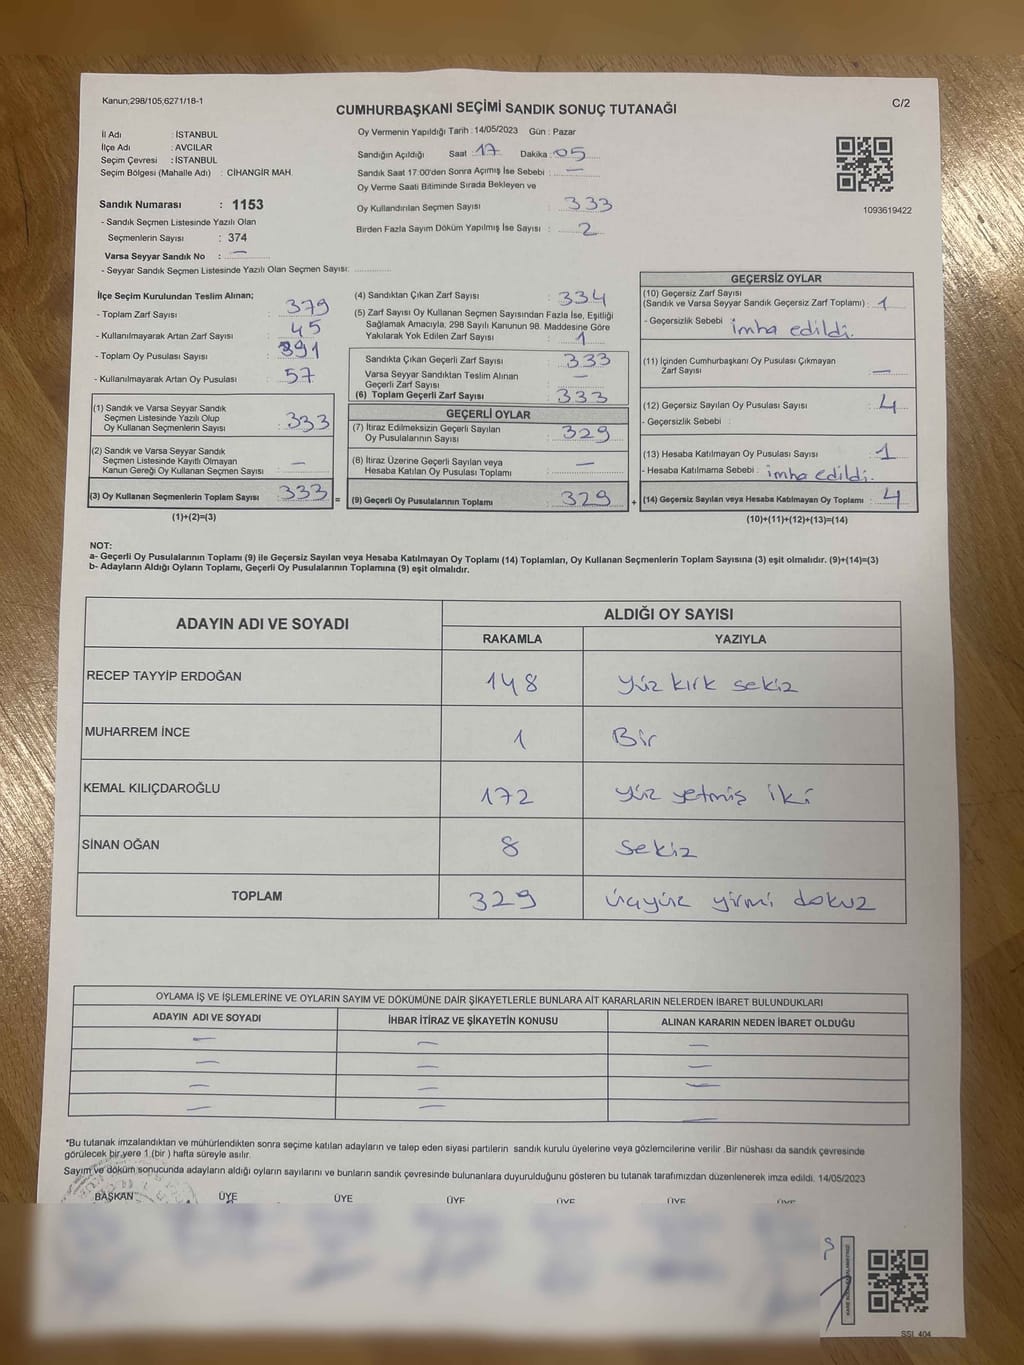 Kanun;298/105;6271/18-1
CUMHURBAŞKANI SEÇİMİ SANDIK SONUÇ TUTANAĞI
C/2
İl Adı : İSTANBUL
İlçe Adı : AVCILAR
Seçim Çevresi : İSTANBUL
Seçim Bölgesi (Mahalle Adı) : CİHANGİR MAH.
Sandık Numarası : 1153
- Sandık Seçmen Listesinde Yazılı Olan
Seçmenlerin Sayısı : 374
Varsa Seyyar Sandık No : —
- Seyyar Sandık Seçmen Listesinde Yazılı Olan Seçmen Sayısı:
Oy Vermenin Yapıldığı Tarih : 14/05/2023 Gün : Pazar
Sandığın Açıldığı Saat : 17 Dakika : 05
Sandık Saat 17:00'den Sonra Açımış İse Sebebi : —
Oy Verme Saati Bitiminde Sırada Bekleyen ve
Oy Kullandırılan Seçmen Sayısı : 333
Birden Fazla Sayım Döküm Yapılmış İse Sayısı : 2
1093619422
İlçe Seçim Kurulundan Teslim Alınan;
- Toplam Zarf Sayısı : 379
- Kullanılmayarak Artan Zarf Sayısı : 45
- Toplam Oy Pusulası Sayısı : 391
- Kullanılmayarak Artan Oy Pusulası : 57
(1) Sandık ve Varsa Seyyar Sandık
Seçmen Listesinde Yazılı Olup
Oy Kullanan Seçmenlerin Sayısı : 333
(2) Sandık ve Varsa Seyyar Sandık
Seçmen Listesinde Kayıtlı Olmayan
Kanun Gereği Oy Kullanan Seçmen Sayısı : —
(3) Oy Kullanan Seçmenlerin Toplam Sayısı : 333 =
(1)+(2)=(3)
(4) Sandıktan Çıkan Zarf Sayısı : 334
(5) Zarf Sayısı Oy Kullanan Seçmen Sayısından Fazla İse, Eşitliği
Sağlamak Amacıyla, 298 Sayılı Kanunun 98. Maddesine Göre
Yakılarak Yok Edilen Zarf Sayısı : 1
Sandıkta Çıkan Geçerli Zarf Sayısı : 333
Varsa Seyyar Sandıktan Teslim Alınan
Geçerli Zarf Sayısı : —
(6) Toplam Geçerli Zarf Sayısı : 333
GEÇERLİ OYLAR
(7) İtiraz Edilmeksizin Geçerli Sayılan
Oy Pusulalarının Sayısı : 329
(8) İtiraz Üzerine Geçerli Sayılan veya
Hesaba Katılan Oy Pusulası Toplamı : —
(9) Geçerli Oy Pusulalarının Toplamı : 329 +
GEÇERSİZ OYLAR
(10) Geçersiz Zarf Sayısı
(Sandık ve Varsa Seyyar Sandık Geçersiz Zarf Toplamı) : 1
- Geçersizlik Sebebi : imha edildi.
(11) İçinden Cumhurbaşkanı Oy Pusulası Çıkmayan
Zarf Sayısı : —
(12) Geçersiz Sayılan Oy Pusulası Sayısı : 4
- Geçersizlik Sebebi :
(13) Hesaba Katılmayan Oy Pusulası Sayısı : 1
- Hesaba Katılmama Sebebi : imha edildi.
(14) Geçersiz Sayılan veya Hesaba Katılmayan Oy Toplamı : 4
(10)+(11)+(12)+(13)=(14)
NOT:
a- Geçerli Oy Pusulalarının Toplamı (9) ile Geçersiz Sayılan veya Hesaba Katılmayan Oy Toplamı (14) Toplamları, Oy Kullanan Seçmenlerin Toplam Sayısına (3) eşit olmalıdır. (9)+(14)=(3)
b- Adayların Aldığı Oyların Toplamı, Geçerli Oy Pusulalarının Toplamına (9) eşit olmalıdır.
ADAYIN ADI VE SOYADI
ALDIĞI OY SAYISI
RAKAMLA YAZIYLA
RECEP TAYYİP ERDOĞAN 148 yüz kırk sekiz
MUHARREM İNCE 1 Bir
KEMAL KILIÇDAROĞLU 172 yüz yetmiş iki
SİNAN OĞAN 8 Sekiz
TOPLAM 329 üçyüz yirmi dokuz
OYLAMA İŞ VE İŞLEMLERİNE VE OYLARIN SAYIM VE DÖKÜMÜNE DAİR ŞİKAYETLERLE BUNLARA AİT KARARLARIN NELERDEN İBARET BULUNDUKLARI
ADAYIN ADI VE SOYADI İHBAR İTİRAZ VE ŞİKAYETİN KONUSU ALINAN KARARIN NEDEN İBARET OLDUĞU
— — —
— — —
— — —
— — —
*Bu tutanak imzalandıktan ve mühürlendikten sonra seçime katılan adayların ve talep eden siyasi partilerin sandık kurulu üyelerine veya gözlemcilerine verilir .Bir nüshası da sandık çevresinde
görülecek bir yere 1 (bir ) hafta süreyle asılır.
Sayım ve döküm sonucunda adayların aldığı oyların sayılarını ve bunların sandık çevresinde bulunanlara duyurulduğunu gösteren bu tutanak tarafımızdan düzenlenerek imza edildi. 14/05/2023
BAŞKAN ÜYE ÜYE ÜYE ÜYE ÜYE ÜYE
SSI_404